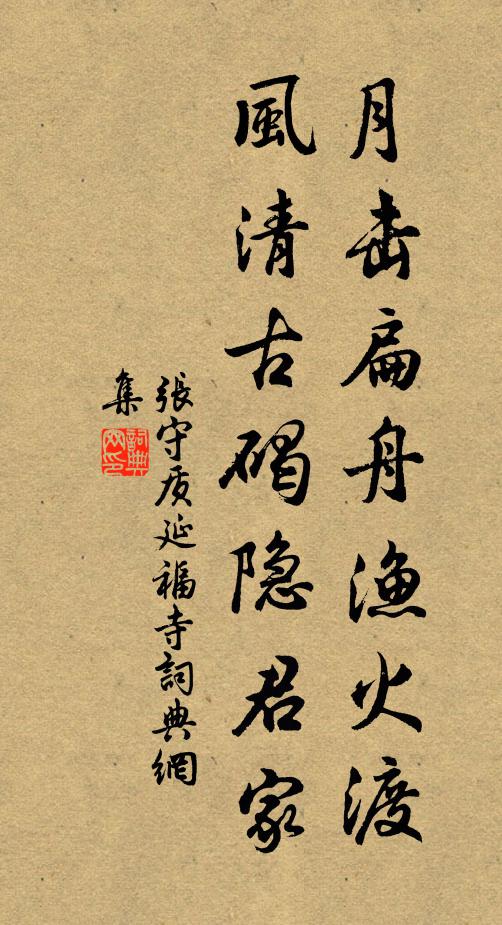 月击扁舟漁火渡
風清古碣隐君家
張守质延福寺詞典網
集
詞典网印